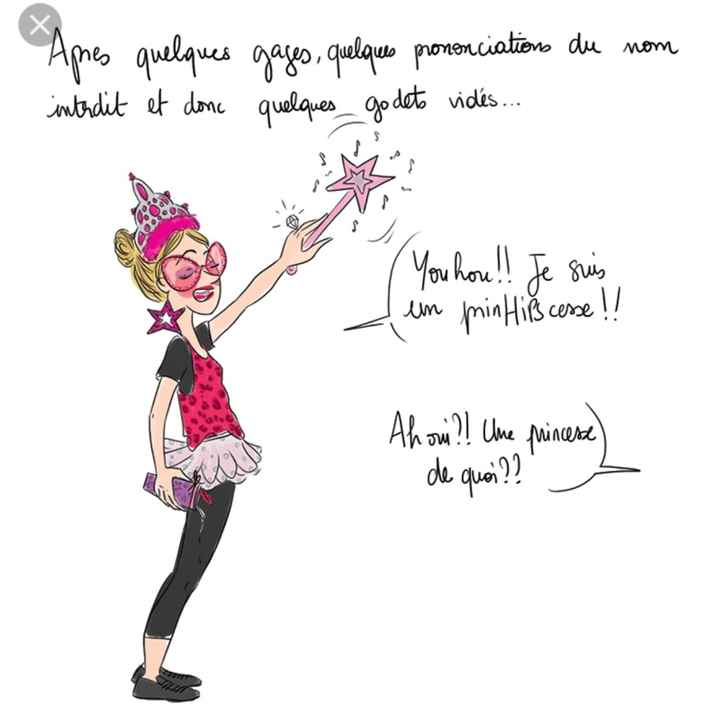 Apres quelques gages, quelques prononciations du nom
interdit et donc quelques godets vidés...
Youhou!! Je suis
un prinHiPScesse!!
Ah oui?! Une princesse
de quoi??